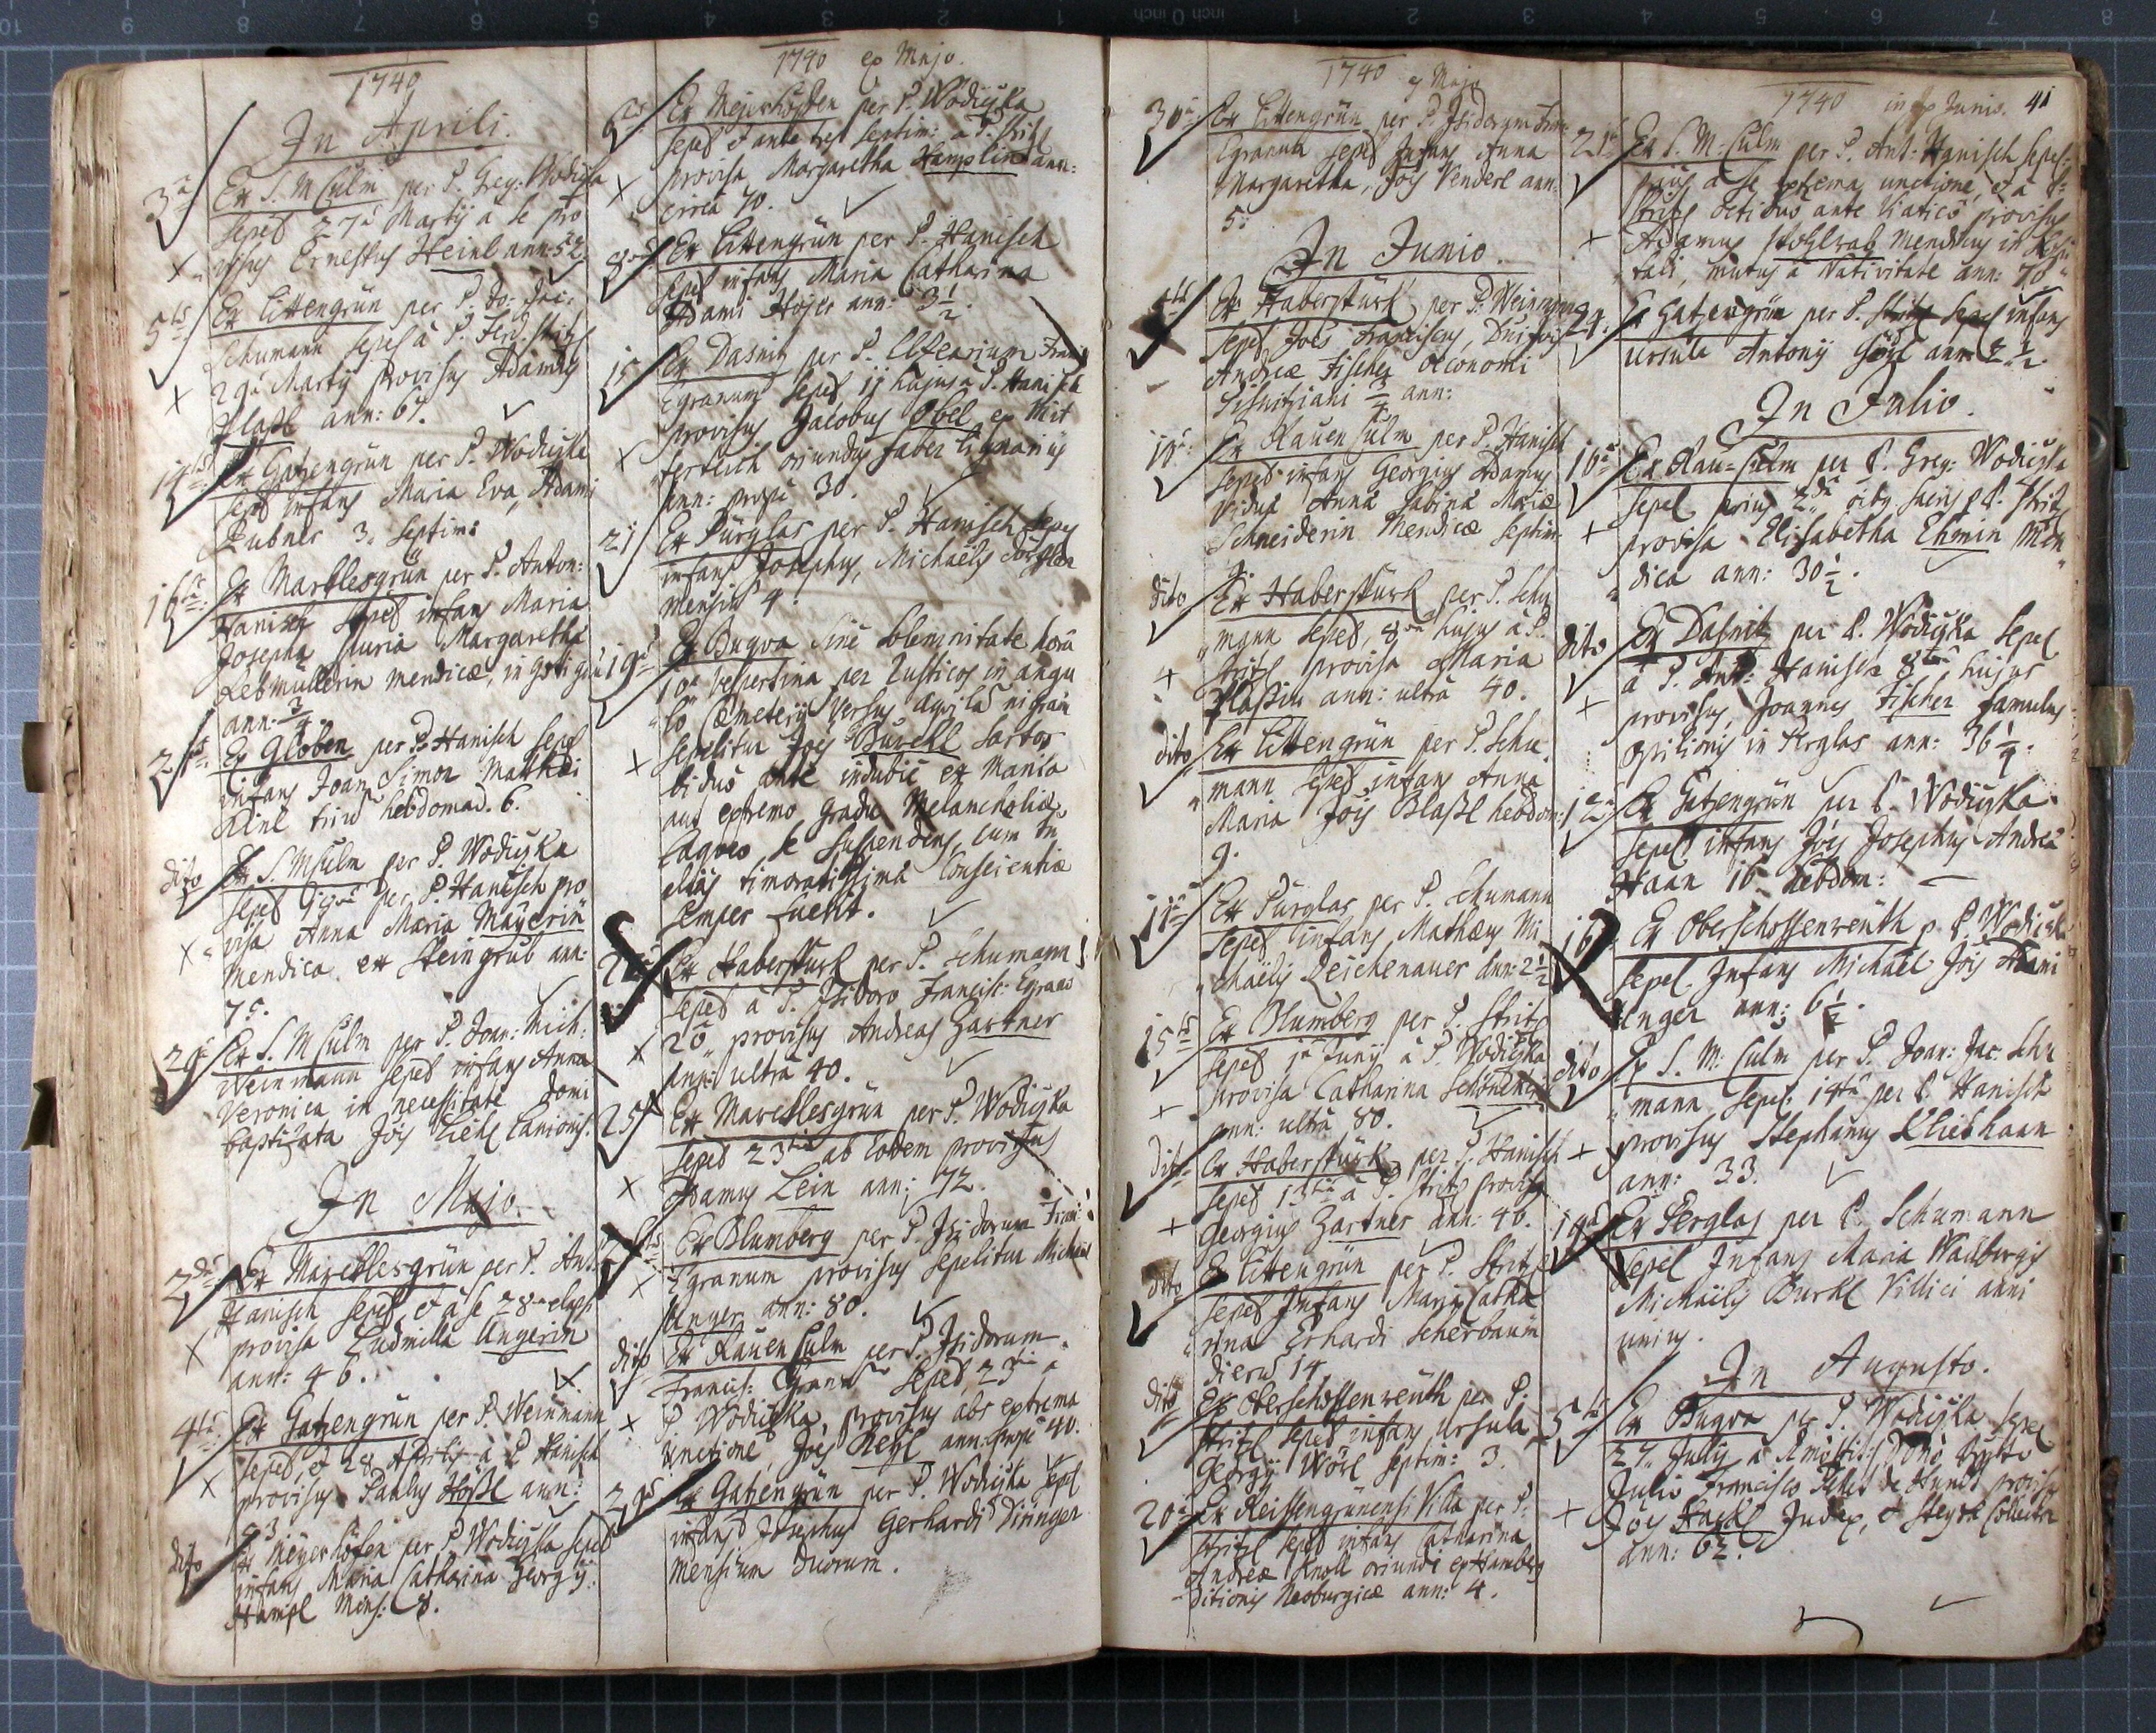 1740
In Aprili.
3a Ex S. M Culm per P. Greg: Wodicżka
sepel 27a Martij a se pro
visus Ernestus Heinl ann: 52
5ta Ex Littengrün per P. Jo: Jac:
Schumann sepel a P. Ferd. Stritzl
29a Martij provisus Adamus
Plaßl ann: 67.
14ta Ex Gatzengrün per P. Wodicżka
sepel infans Maria Eva, Adami
Lubner 3. septim:
16ta Ex Marklesgrün per P. Anton:
Hanisch sepel infans Maria
Josepha spuria Margaretha
Lebmüllerin mendicæ,
ann: 3/4
21ma Ex Globen per P. Hanisch sepel
infans Joan Simon Mathæi
hebdomad. 6.
dito Ex S. M Culm per P. Wodicżka
sepel per P. Hanisch pro
visa Anna Maria Mayerin
mendica ex Steingrub ann:
75.
29a Ex S. M Culm per P. Joan: Mich:
Weinmann sepel infans Anna
Veronica in necessitate domi
baptizata Jois Liehl Lanionis.
In Majo.
2da Ex Mareklesgrün per P. Ant:
Hanisch sepel et a se 28 elaps:
provisa Ludmilla Ungerin
ann: 46.
4ta Ex Gatzengrün per P. Weinmann
sepel et 28 Aprilis a P Hanisch
provisus Paulus Hößl ann:
63
dito Ex Meyerhöfen per P Wodicżka sepel
infans Maria Catharina Georgij
Hampl Mens: 8.
1740 ex Majo.
6ta Ex Mejerhöffen per P. Wodicżka
sepel et ante tres septim: a P. Stritzl
provisa Margaretha Hamplin ann:
circa 70.
8va Ex Littengrün per P. Hanisch
sepel infans Maria Catharina
Adami Hojer ann: 3 1/2.
15 Ex Dasnitz per P. Elzearium Franc:
Egranum sepel 11 hujus a P. Hanisch
provisus Jacobus Obel, ex Mit
terteich oriundus faber lignarius
ann: prope 30.
21 Ex Pürglas per P. Hanisch sepel
infans Josephus, Michaëlis
mensium 4.
19a Ex Bugva sine solemnitate hora
10a vespertina per rusticos in angu
lo Cæmeterij versus aquilam nigram
sepelitur Jois Burekl sartor
bidus ante indubie ex mania
aut extremo gradu Melancholiæ
laqueo se suspendens, cum
timoratissima Conscientiæ
semper fuerit.
Ex Haberspurk per P. Schumann
sepel a P. Isidoro Francisc: Egrano
20 provisus Andreas Gartner
ann: ultra 40.
25 Ex Mareklesgrün per P. Wodicżka
sepel 23tia ab eodem provisus
Adamus Lein ann: 72.
Ex Blumberg per P. Isidorum Fran:
Egranum provisus sepelitur Michaël
Unger ann: 80.
dito Ex Rauen Culm per P. Isidorum
Francis: Egranum sepel, 23tia a
P Wodicżka, provisus abs extrema
unctione, Jois Rehl ann: prope 40.
29a Ex Gatzengrün per P. Wodicżka sepl
infans Josephus Gerhardi Dittinger
mensium duorum.
1740 ex Majo
30a Ex Littengrün per P. Isidorum Fran:
Egranum sepel infans Anna
Margaretha, Jois Venderl ann:
5.
In Junio.
Ex Haberspurk per P. Weinmann
sepel Joes Franciscus,
Andreæ Fischer Oeconomi
3/4 ann:
10a Ex Rauen Culm per P. Hanisch
sepel infans Georgius Adamus
vidua Anna Sabina Mariæ
Schneiderin Mendicæ septim
9.
dito Ex Haberspurk per P. Schu
mann sepel, 8va hujus a P.
Stritzl provisa Maria
Plaßin ann: ultra 40.
dito Ex Littengrün per P. Schu
mann sepel infans Anna
Maria Jois Blaßl hebdom:
9.
11a Ex Pürglas per P. Schumann
sepel infans Mathæus Mi
chaëlis Reichenauer ann: 2 1/2
15ta Ex Blumberg per P. Stritzl
sepel 1a Junij a P. Wodicżka
provisa Catharina
ann: ultra 80.
dito Ex Haberspurk per P. Hanisch
sepel 13tia a P. Stritzl provisus
Georgius Gartner ann: 46.
dito Ex Littengrün per P. Stritzl
sepel Infans Maria Catha
rina Erhardi Scherbaum
dierum 14.
dito Ex Oberschossenreüth per P.
Stritzl sepel infans Ursula
Georgij Wöhl septim: 3.
20a Ex Reissengrünensi Villa per P.
Stritzl sepel infans Catharina
Andreæ Knoll oriundi ex Hamberg
ditionis Neoburgicæ ann: 4.
1740 in ex Junio. 41
21a Ex S. M: Culm per P. Ant: Hanisch sepel:
prius a se extrema unctione, et a P:
Stritzl octiduo ante Viatico provisus
Adamus Stohlrab Mendicus in Hospi
tali, mutus a Nativitate ann: 70
24. Ex Gatzengrün per P. Stritzl sepel infans
Ursula Antonij Göhl ann: 2 1/2.
In Julio.
10a Ex Rau=Culm per P. Greg: Wodicżka
sepel prius 2da P. Stritzl
provisa Elisabetha Ehmin Men
dica ann: 30 1/2.
dito Ex Dasnitz per P. Wodicżka sepel
a P. Ant: Hanisch 8va hujus
provisus, Joannes Fischer famulus
opilionis in Perglas ann: 36 1/4.
12a Ex Gatzengrün per P. Wodicżka
sepel infans Jois Josephus Andreæ
Haan 16 hebdom:
16 Ex Oberschossenreüth p P. Wodicżk
sepel. Infans Michaël Jois Adami
Unger ann: 6 1/2.
dito Ex S. M: Culm per P. Joan: Jac. Schu
mann, sepel: 14ta per P. Hanisch
provisus Stephanus Kliebhaan
ann: 33.
19a Ex Perglas per P. Schumann
sepel Infans Maria Walburgis
Michaëlis Burkl Villici anni
unius.
In Augusto.
5ta Ex Bugva per P. Wodicżka sepel
27. Julij a Dono
Julio Francisco de Hund provisus
Jois Hackl Judex, et Steyer Collector
ann: 62.